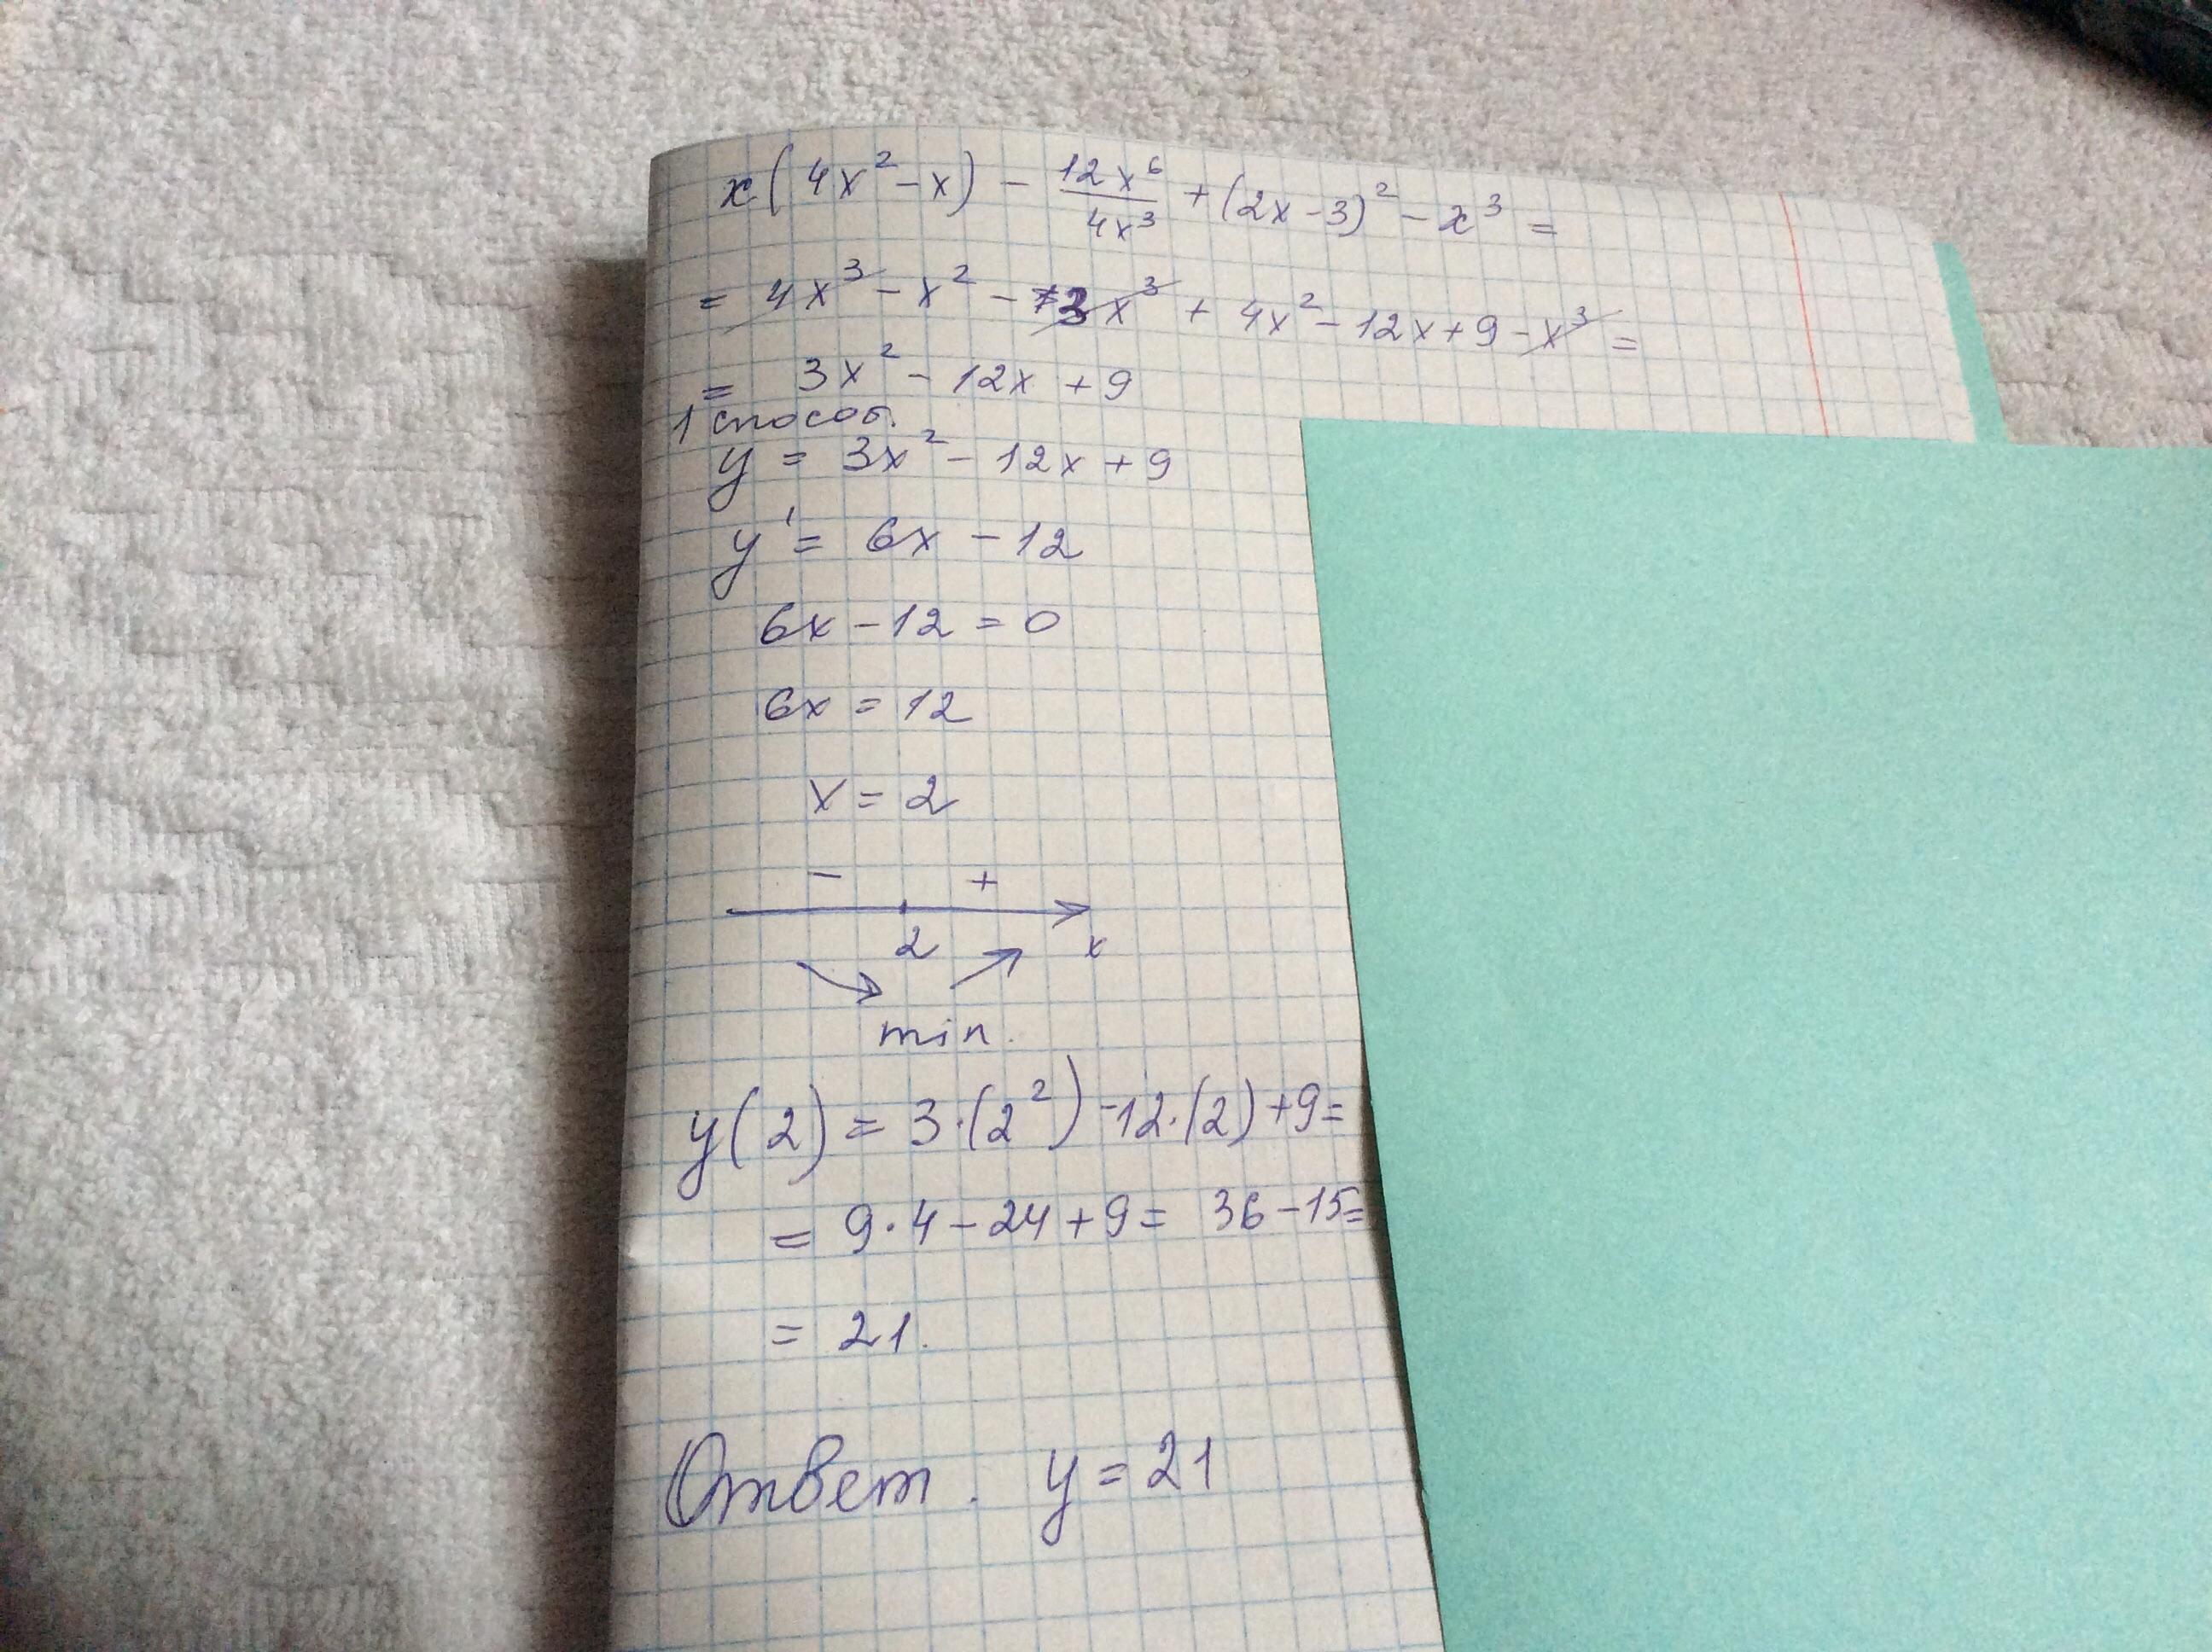 x(4x² - x) - 12x⁶/4x³ + (2x - 3)² - x³ =
= 4x³ - x² - 3x³ + 4x² - 12x + 9 - x³ =
= 3x² - 12x + 9
1 способ.
y = 3x² - 12x + 9
y' = 6x - 12
6x - 12 = 0
6x = 12
x = 2
- +
2 x
min.
y(2) = 3·(2²) - 12·(2) + 9 =
= 9·4 - 24 + 9 = 36 - 15 =
= 21.
Ответ. y = 21